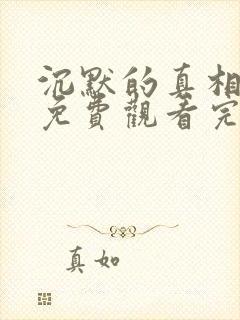 沉默的真相
免費觀看完
真如